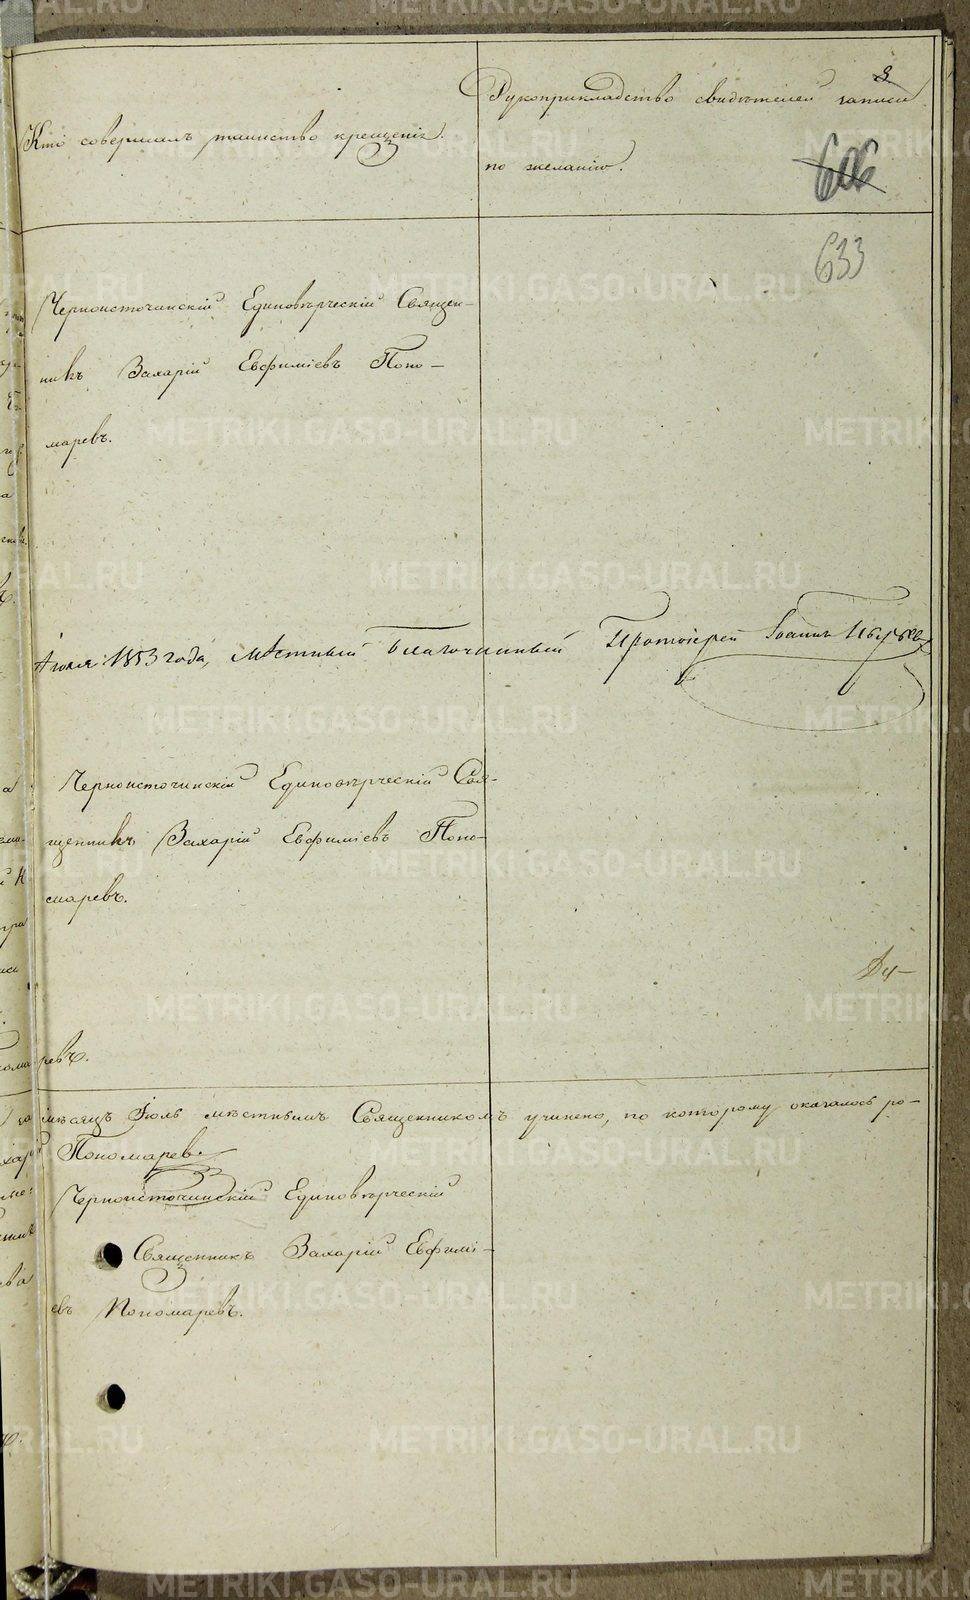 3
Рукоприкладство свидѣтелей записи
Кто совершалъ таинство крещенія.
по желанію.
606
633
Черноисточинскій Единовѣрческій Священ-
никъ Захарій Евфиміевъ Поно-
маревъ.
Іюля 1853 года, мѣстный Благочинный Протоіерей Іоаннъ
Черноисточинскій Единовѣрческій Свя-
щенникъ Захарій Евфиміевъ Поно-
маревъ.
ревъ.
мѣсяцъ Іюль мѣстнымъ Священникомъ учинено, по которому оказалось ро-
Пономаревъ
Черноисточинскій Единовѣрческій
Священникъ Захарій Евфимі-
евъ Пономаревъ.
METRIKI.GASO-URAL.RU